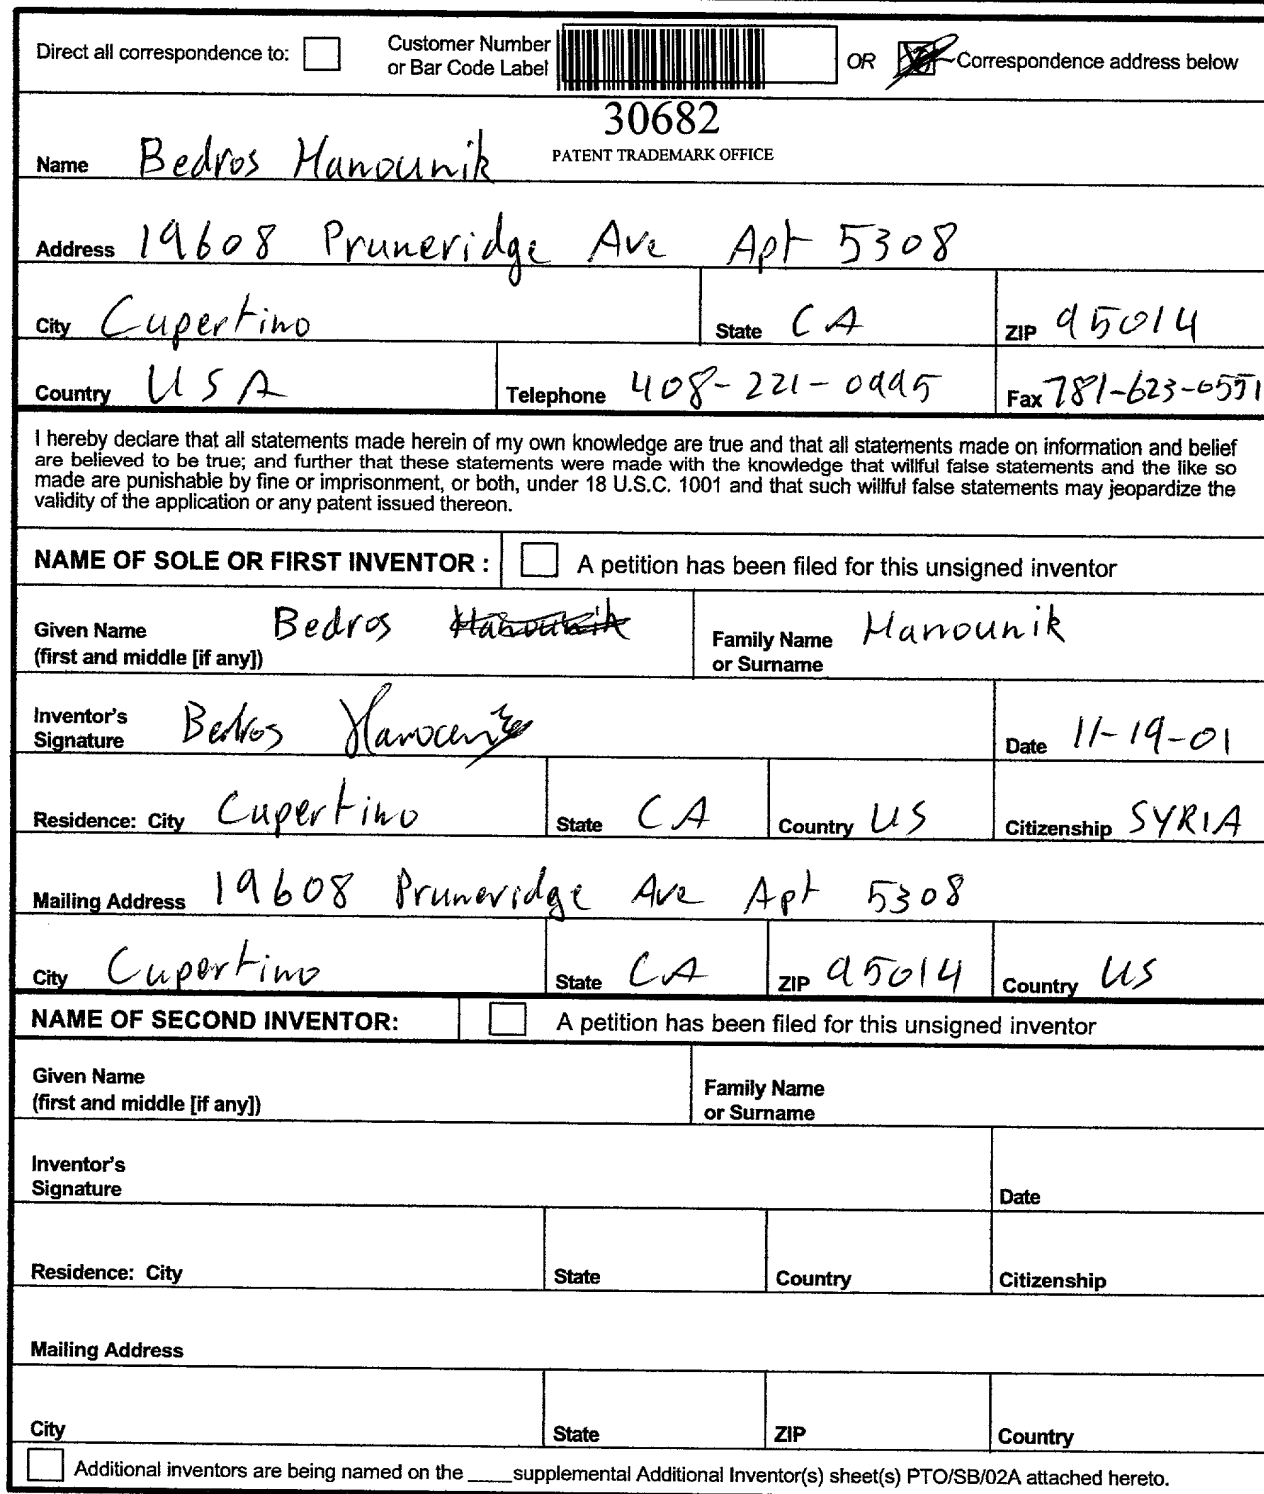 Direct all correspondence to: Customer Number OR Correspondence address below
or Bar Code Label
30682
PATENT TRADEMARK OFFICE
Name Bedros Hanounik
Address 19608 Pruneridge Ave Apt 5308
City Cupertino State CA ZIP 95014
Country USA Telephone 408-221-0995 Fax 781-623-0551
I hereby declare that all statements made herein of my own knowledge are true and that all statements made on information and belief
are believed to be true; and further that these statements were made with the knowledge that willful false statements and the like so
made are punishable by fine or imprisonment, or both, under 18 U.S.C. 1001 and that such willful false statements may jeopardize the
validity of the application or any patent issued thereon.
NAME OF SOLE OR FIRST INVENTOR : A petition has been filed for this unsigned inventor
Given Name Bedros Hanounik Family Name Hanounik
(first and middle [if any]) or Surname
Inventor's
Signature Bedros Hanounik Date 11-19-01
Residence: City Cupertino State CA Country US Citizenship SYRIA
Mailing Address 19608 Pruneridge Ave Apt 5308
City Cupertino State CA ZIP 95014 Country US
NAME OF SECOND INVENTOR: A petition has been filed for this unsigned inventor
Given Name Family Name
(first and middle [if any]) or Surname
Inventor's
Signature Date
Residence: City State Country Citizenship
Mailing Address
City State ZIP Country
Additional inventors are being named on the ____supplemental Additional Inventor(s) sheet(s) PTO/SB/02A attached hereto.